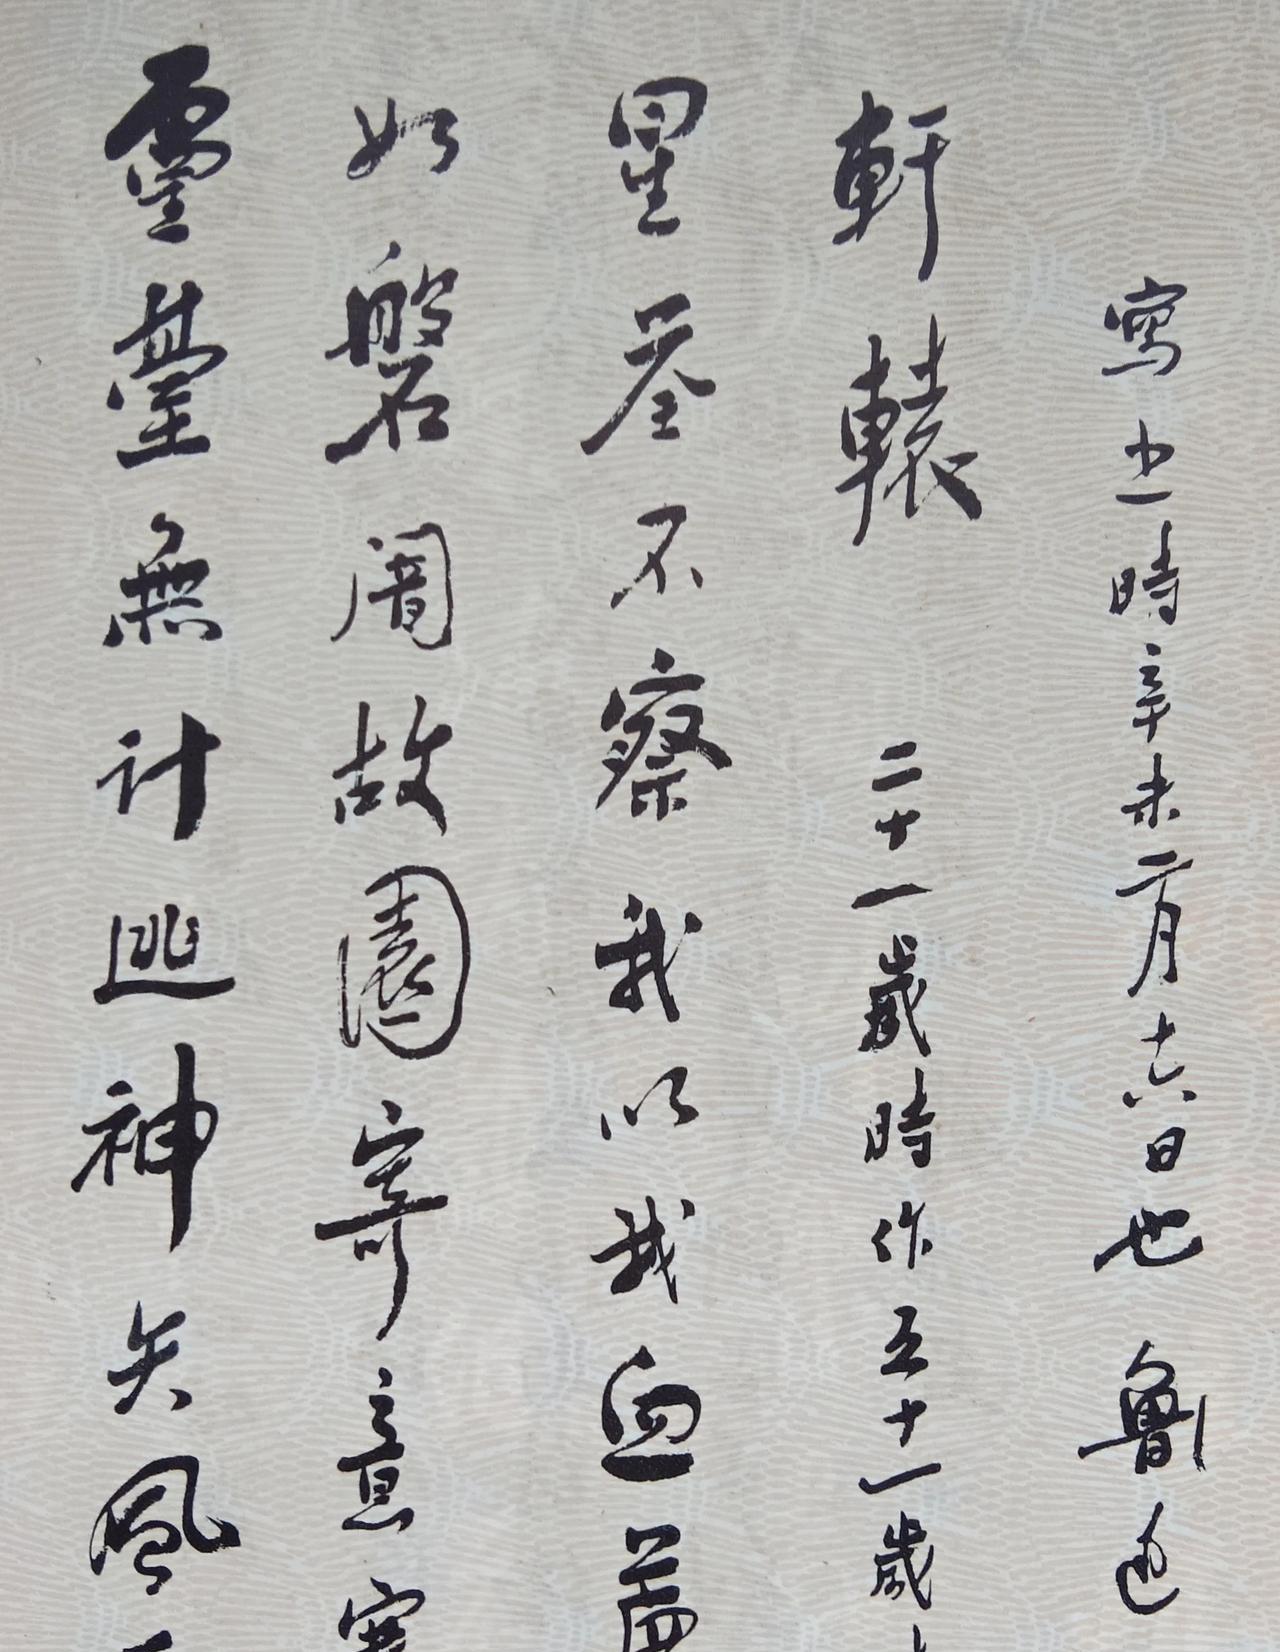 靈臺無計逃神矢風
如磐闇故園寄意寒
星荃不察我以我血薦
軒轅 二十一歲時作五十一歲
寫之時辛未二月十六日也 魯迅